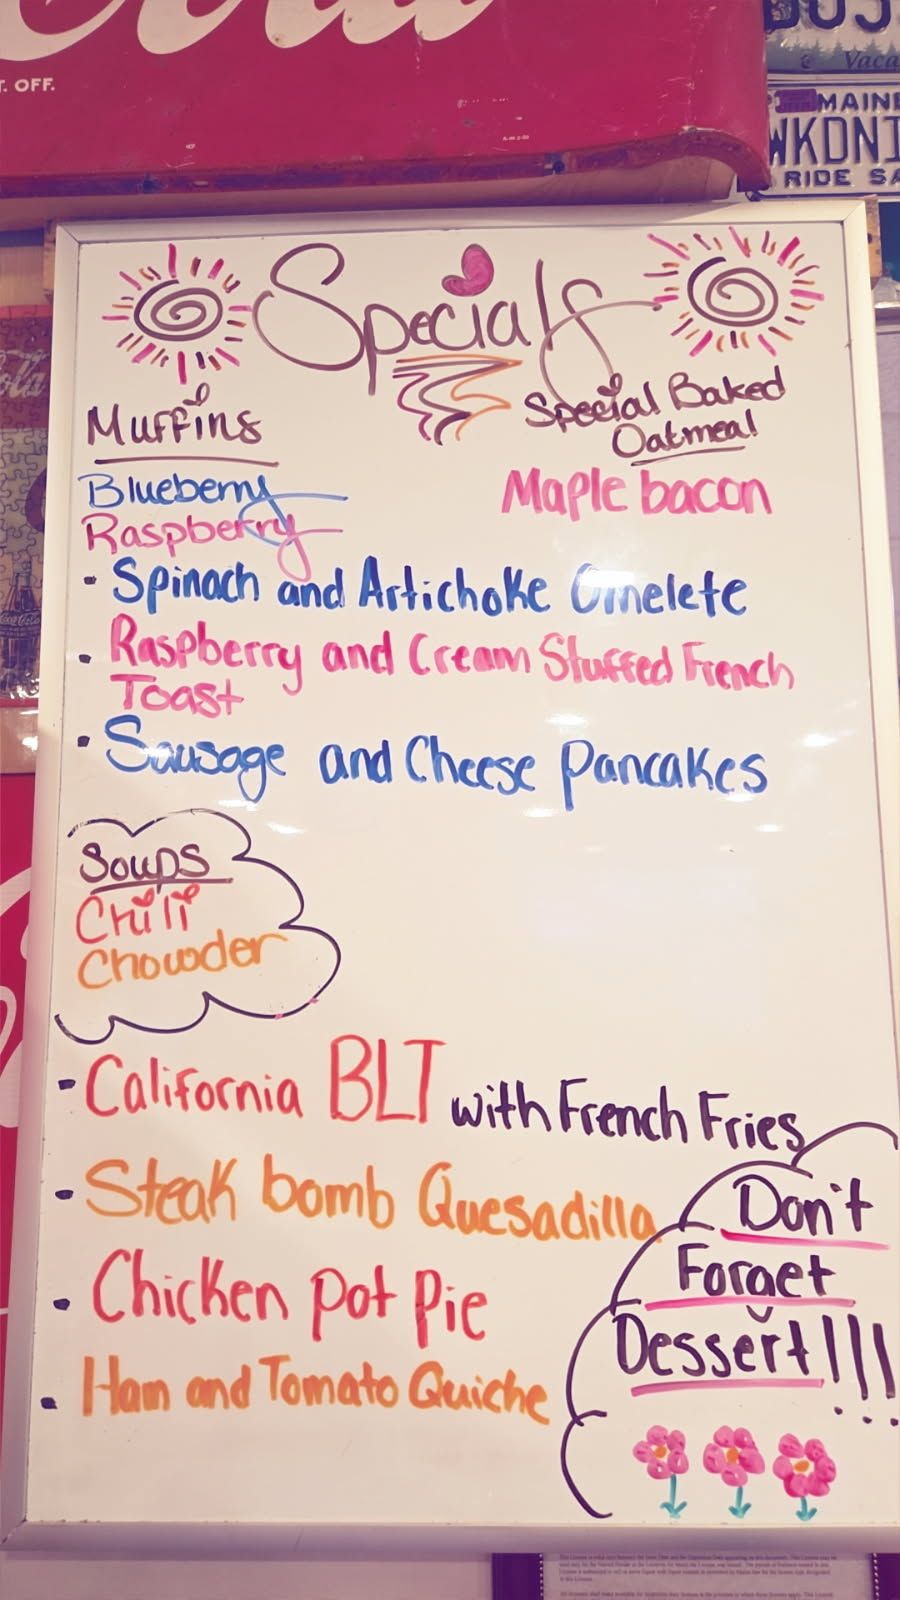 T. OFF.
Vaca
MAINE
WKDNI
RIDE SA
Specials
Muffins
Blueberry
Raspberry
Special Baked
Oatmeal
Maple bacon
· Spinach and Artichoke Omelete
· Raspberry and Cream Stuffed French
Toast
· Sausage and Cheese Pancakes
Soups
Chili
Chowder
- California BLT with French Fries
· Steak bomb Quesadilla
· Chicken Pot Pie
· Ham and Tomato Quiche
Don't
Forget
Dessert!!!